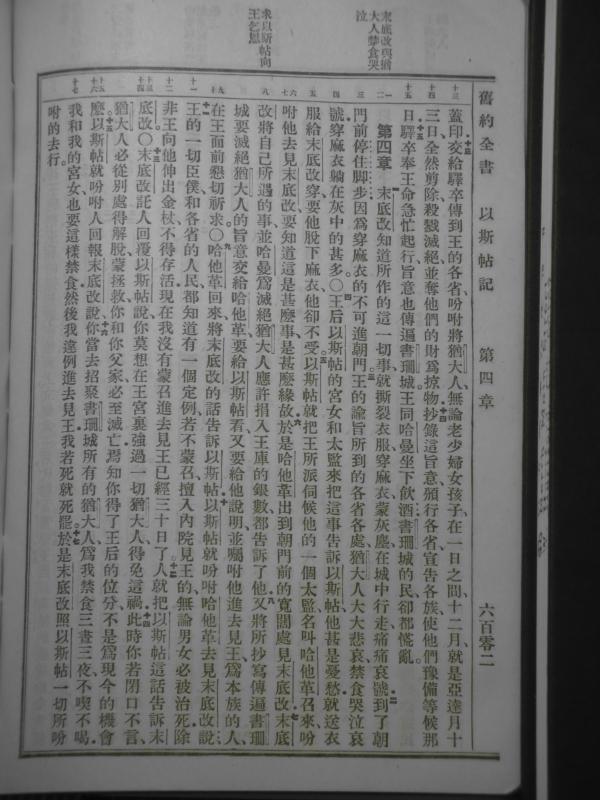 末底改與猶
大人禁食哭
泣
求以斯帖向
王乞恩
舊約全書 以斯帖記 第四章 六百零二
十三 蓋印交給驛卒傳到王的各省吩咐將猶大人無論老少婦女孩子在一日之間十二月就是亞達月十
十四 三日全然剪除殺戮滅絕並奪他們的財爲掠物抄錄這旨意頒行各省宣告各族使他們豫備等候那
十五 日驛卒奉王命急忙起行旨意也傳遍書珊城王同哈曼坐下飲酒書珊城的民卻都慌亂
一二 第四章 末底改知道所作的這一切事就撕裂衣服穿麻衣蒙灰塵在城中行走痛痛哀號到了朝
三 門前停住脚步因爲穿麻衣的不可進朝門王的諭旨所到的各省各處猶大人大大悲哀禁食哭泣哀
四 號穿麻衣躺在灰中的甚多○王后以斯帖的宮女和太監來把這事告訴以斯帖他甚是憂愁就送衣
五 服給末底改穿要他脫下麻衣他卻不受以斯帖就把王所派伺候他的一個太監名叫哈他革召來吩
六七 咐他去見末底改要知道這是甚麼事是甚麼緣故於是哈他革出到朝門前的寬闊處見末底改末底
八 改將自己所遇的事並哈曼爲滅絕猶大人應許捐入王庫的銀數都告訴了他又將所抄寫傳遍書珊
城要滅絕猶大人的旨意交給哈他革要給以斯帖看又要給他說明並囑咐他進去見王爲本族的人
九十 在王面前懇切祈求○哈他革回來將末底改的話告訴以斯帖以斯帖就吩咐哈他革去見末底改說
十一 王的一切臣僕和各省的人民都知道有一個定例若不蒙召擅入內院見王的無論男女必被治死除
十二 非王向他伸出金杖不得存活現在我沒有蒙召進去見王已經三十日了人就把以斯帖這話告訴末
十三十四 底改○末底改託人回覆以斯帖說你莫想在王宮裏強過一切猶大人得免這禍此時你若閉口不言
猶大人必從別處得解脫蒙拯救你和你父家必至滅亡焉知你得了王后的位分不是爲現今的機會
十五十六 麼以斯帖就吩咐人回報末底改說你當去招聚書珊城所有的猶大人爲我禁食三晝三夜不喫不喝
十七 我和我的宮女也要這樣禁食然後我違例進去見王我若死就死罷於是末底改照以斯帖一切所吩
咐的去行